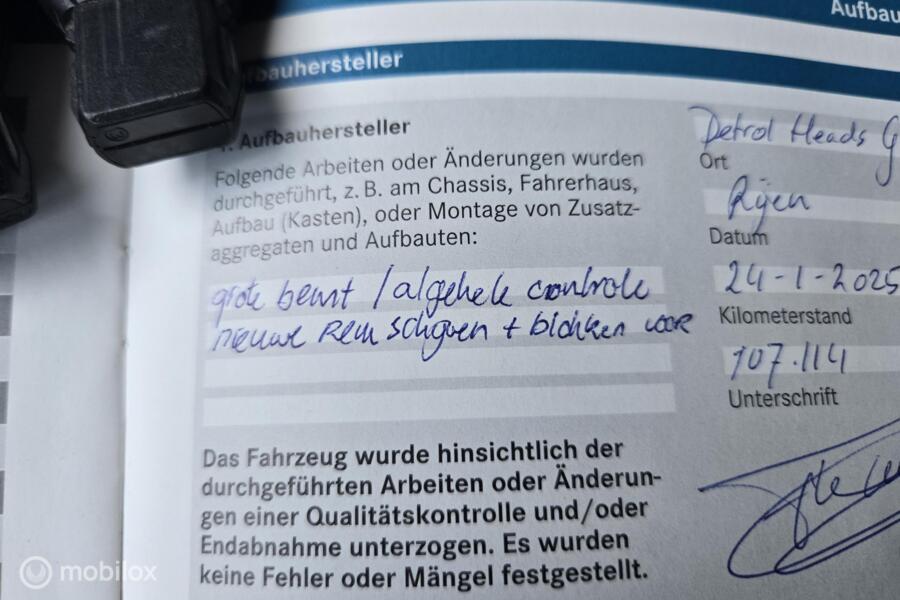 Aufbau
fbauhersteller
1. Aufbauhersteller
Folgende Arbeiten oder Änderungen wurden
durchgeführt, z. B. am Chassis, Fahrerhaus,
Aufbau (Kasten), oder Montage von Zusatz-
aggregaten und Aufbauten:
grote beurt / algehele controle
nieuwe Rem schijven + blokken voor
Das Fahrzeug wurde hinsichtlich der
durchgeführten Arbeiten oder Änderun-
gen einer Qualitätskontrolle und/oder
Endabnahme unterzogen. Es wurden
keine Fehler oder Mängel festgestellt.
Petrol Heads G
Ort
Rijen
Datum
24-1-2025
Kilometerstand
107.114
Unterschrift
mobilox